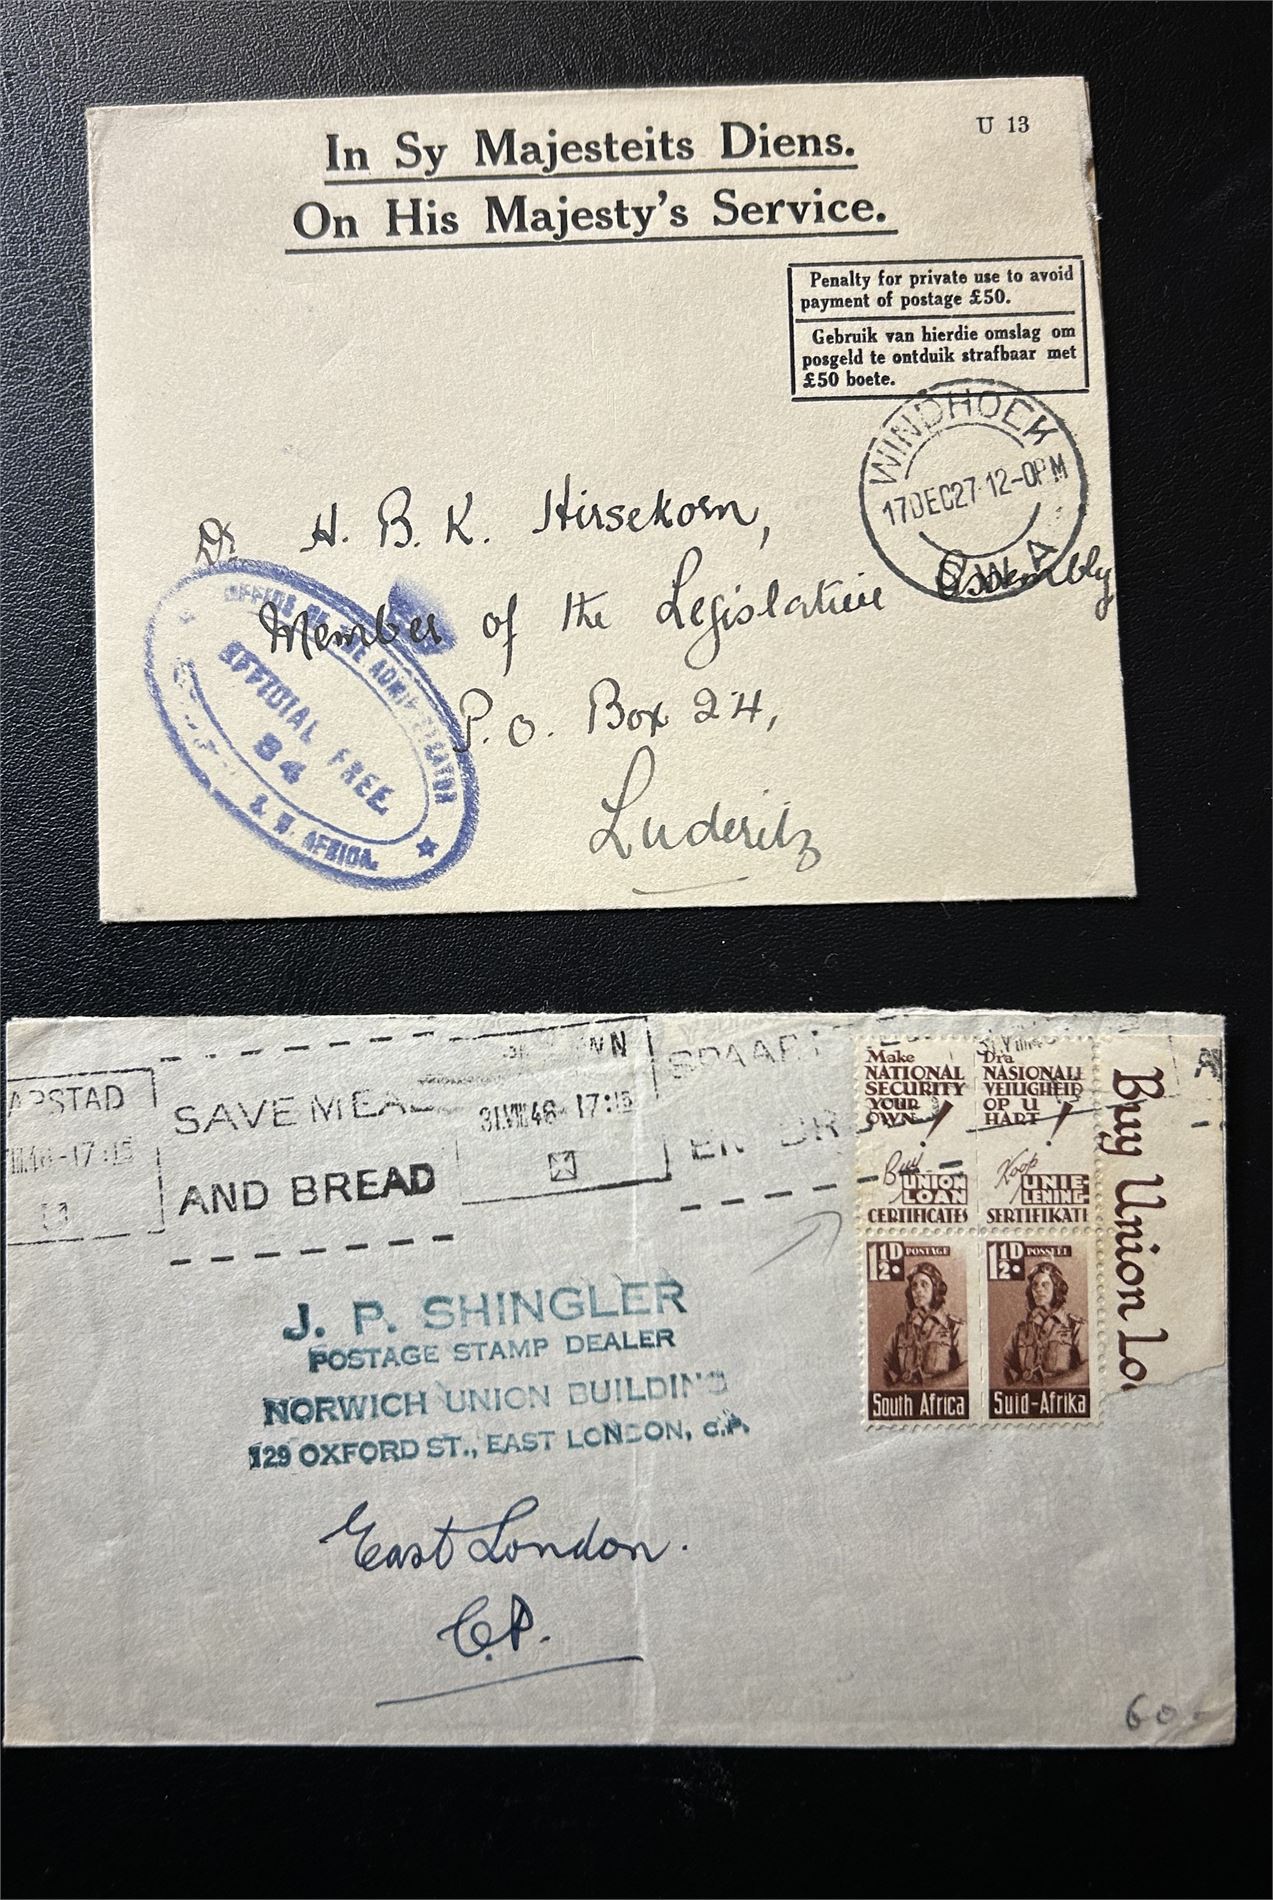 In Sy Majesteits Diens.
On His Majesty's Service.
U 13
Penalty for private use to avoid
payment of postage £50.
Gebruik van hierdie omslag om
posgeld te ontduik strafbaar met
£50 boete.
WINDHOEK
17DEC27·12-0PM
S.W.A
Dr H. B. K. Hirsekorn,
Member of the Legislative Assembly
P.O. Box 24,
Luderitz
OFFICE OF THE ADMINISTRATOR
OFFICIAL FREE
84
S. W. AFRICA.
APSTAD
17:15
SAVE MEAL
AND BREAD
WN
31.VIII.48-17:15
SPAAR
EN BR
Make
NATIONAL
SECURITY
YOUR
OWN!
Buy
UNION
LOAN
CERTIFICATES
Dra
NASIONALE
VEILIGHEID
OP U
HART!
Koop
UNIE-
LENING-
SERTIFIKATE
Buy Union Lo
1½D. POSTAGE
South Africa
1½D. POSSEËL
Suid-Afrika
J. P. SHINGLER
POSTAGE STAMP DEALER
NORWICH UNION BUILDING
129 OXFORD ST., EAST LONDON, C.P.
East London.
C.P.
60-